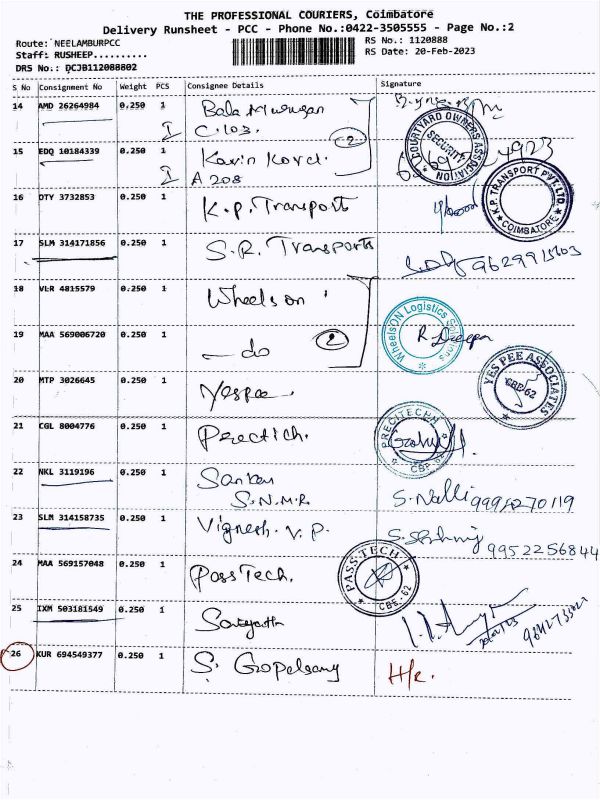 THE PROFESSIONAL COURIERS, Coimbatore
Delivery Runsheet - PCC - Phone No.:0422-3505555 - Page No.:2
Route: NEELAMBURPCC
RS No.: 1120888
Staff: RUSHEEP..........
RS Date: 20-Feb-2023
DRS No.: DCJB112088802
S No Consignment No Weight PCS Consignee Details Signature
14 AMD 26264984 0.250 1 Bala Murugan
I C.103.
COURTYARD OWNERS ASSOCIATION SECURITY
2
15 EDQ 10184339 0.250 1
I A 208
16 DTY 3732853 0.250 1 K.P. Transport
K.P. TRANSPORT PVT. LTD. COIMBATORE
17 SLM 314171856 0.250 1 S.R. Transports
18 VLR 4815579 0.250 1 Wheels on
WheelsON Logistics Solutions
19 MAA 569006720 0.250 1 - do 2 R. Deepa
20 MTP 3026645 0.250 1 Yespee.
YES PEE ASSOCIATES CBE-62
21 CGL 8004776 0.250 1 Prectich.
PRECITECHH CBE-62
22 NKL 3119196 0.250 1
S.N.M.R S. Nalli
23 SLM 314158735 0.250 1 Vignesh. V. P.
9952256844
24 MAA 569157048 0.250 1 PassTech.
PASS TECH CBE-62
25 IXM 503181549 0.250 1
26 KUR 694549377 0.250 1 S. Gopalsamy H/R.